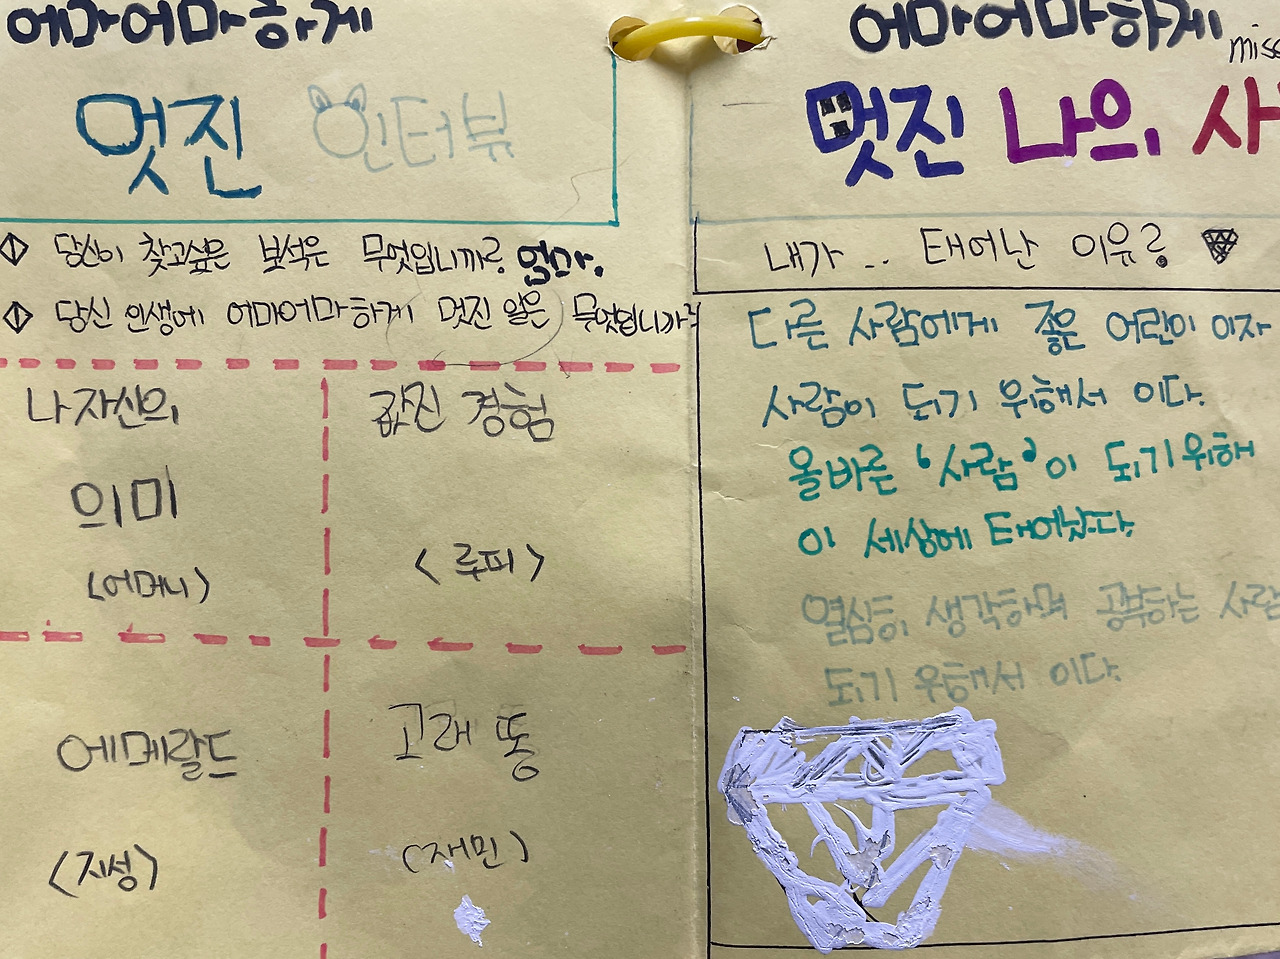 어마어마하게
멋진 인터뷰
당신이 찾고싶은 보석은 무엇입니까? 엄마.
당신 인생에 어마어마하게 멋진 일은 무엇입니까?
나 자신의
의미
<어머니>
값진 경험
<루피>
에메랄드
<지성>
고래 똥
(재민)
어마어마하게
멋진 나의 사
내가 .. 태어난 이유?
다른 사람에게 좋은 어린이 이자
사람이 되기 위해서 이다.
올바른 '사람'이 되기위해
이 세상에 태어났다.
열심히 생각하며 공부하는 사람
되기 위해서 이다.